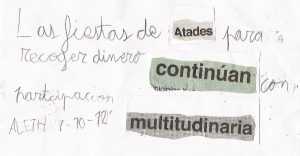 Las fiestas de Atades para
recoger dinero
continúan con
participacion
multitudinaria
ALETH 1-10-12